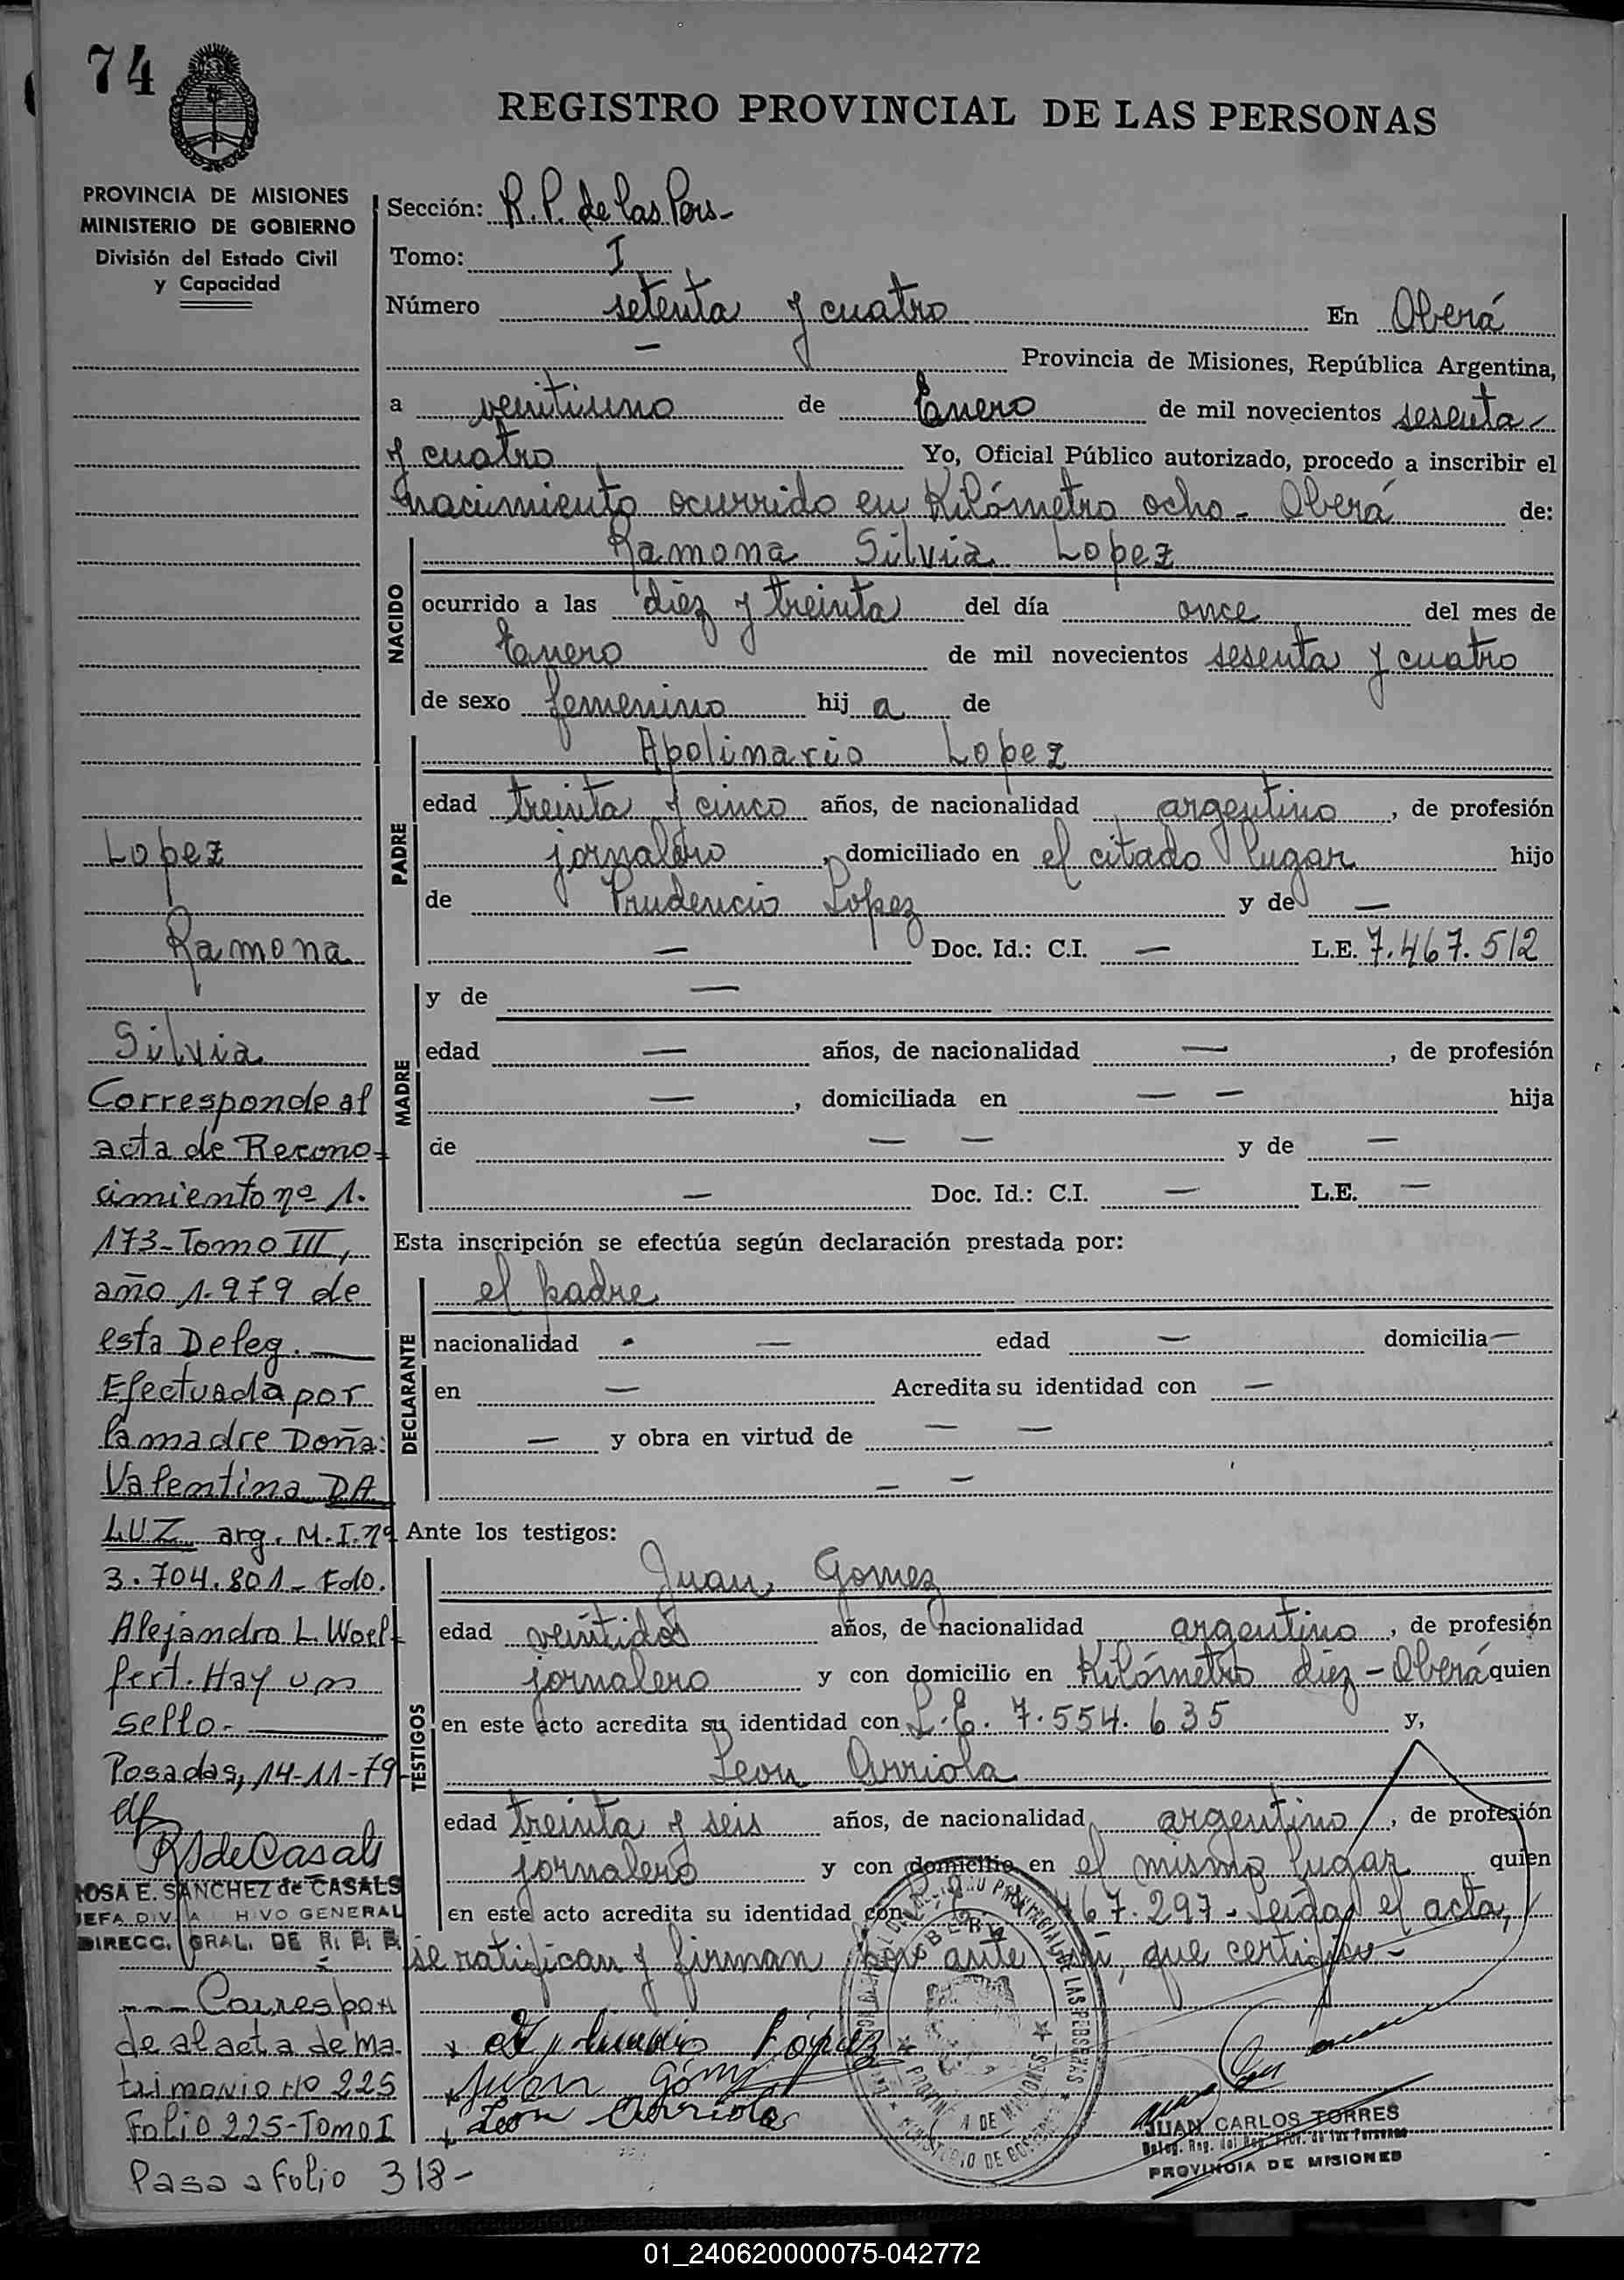 74
REGISTRO PROVINCIAL DE LAS PERSONAS
PROVINCIA DE MISIONES
MINISTERIO DE GOBIERNO
División del Estado Civil
y Capacidad
Sección: R. P. de las Pers-
Tomo: I
Número setenta y cuatro En Oberá
— Provincia de Misiones, República Argentina,
a veintiuno de Enero de mil novecientos sesenta
y cuatro Yo, Oficial Público autorizado, procedo a inscribir el
nacimiento ocurrido en Kilómetro ocho - Oberá de:
NACIDO
Ramona Silvia Lopez
ocurrido a las diez y treinta del día once del mes de
Enero de mil novecientos sesenta y cuatro
de sexo femenino hij a de
PADRE
Apolinario Lopez
edad treinta y cinco años, de nacionalidad argentino, de profesión
jornalero, domiciliado en el citado lugar hijo
de Prudencio Lopez y de —
— Doc. Id.: C.I. — L.E. 7.467.512
MADRE
y de —
edad — años, de nacionalidad —, de profesión
—, domiciliada en — — hija
de — — y de —
— Doc. Id.: C.I. — L.E. —
Esta inscripción se efectúa según declaración prestada por:
DECLARANTE
el padre
nacionalidad — edad — domicilia —
en — Acredita su identidad con —
— y obra en virtud de — —
— —
Ante los testigos:
TESTIGOS
Juan Gomez
edad veintidos años, de nacionalidad argentino, de profesión
jornalero y con domicilio en Kilómetro diez - Oberá quien
en este acto acredita su identidad con L.E. 7.554.635 y,
Leon Arriola
edad treinta y seis años, de nacionalidad argentino, de profesión
jornalero y con domicilio en el mismo lugar quien
en este acto acredita su identidad con 467.297 - Leída el acta,
se ratifican y firman por ante mí, que certifico -
López
Juan Gómez
León Arriola
JUAN CARLOS TORRES
Deleg. Reg. del Reg. Prov. de las Personas
PROVINCIA DE MISIONES
Lopez
Ramona
Silvia
Corresponde al
acta de Recono-
cimiento nº 1.
173-Tomo III,
año 1.979 de
esta Deleg.
Efectuada por
la madre Doña:
Valentina DA
LUZ arg. M.I. nº
3.704.801- Fdo.
Alejandro L. Woel-
fert. Hay un
sello.-
Posadas, 14-11-79
RSdeCasals
ROSA E. SANCHEZ de CASALS
JEFA DIV. ARCHIVO GENERAL
DIRECC. GRAL. DE R. P. P.
--- Correspon
de al acta de ma-
trimonio no 225
Folio 225-Tomo I
Pasa a Folio 318-
01_240620000075-042772